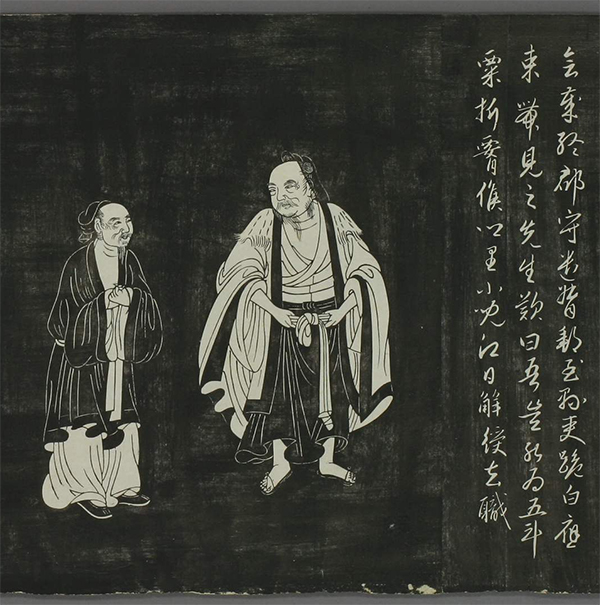 会歲終郡守遣督郵至縣吏跪白應
束帶見之先生歎曰吾豈能为五斗
粟折腰里小児即日解綬去職